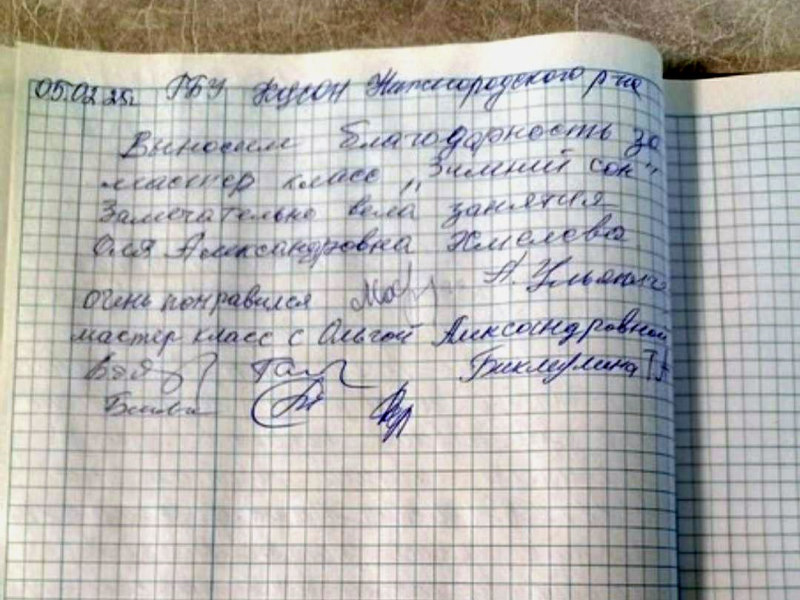 05.02.25г. ГБУ КЦСОН Нижегородского р-на
Выносим благодарность за
мастер класс „Зимний сон"
Замечательно вела занятия
Оля Александровна Хмелева
А. Ульянова
очень понравился
мастер класс с Ольгой Александровной
Биклулина Т.А